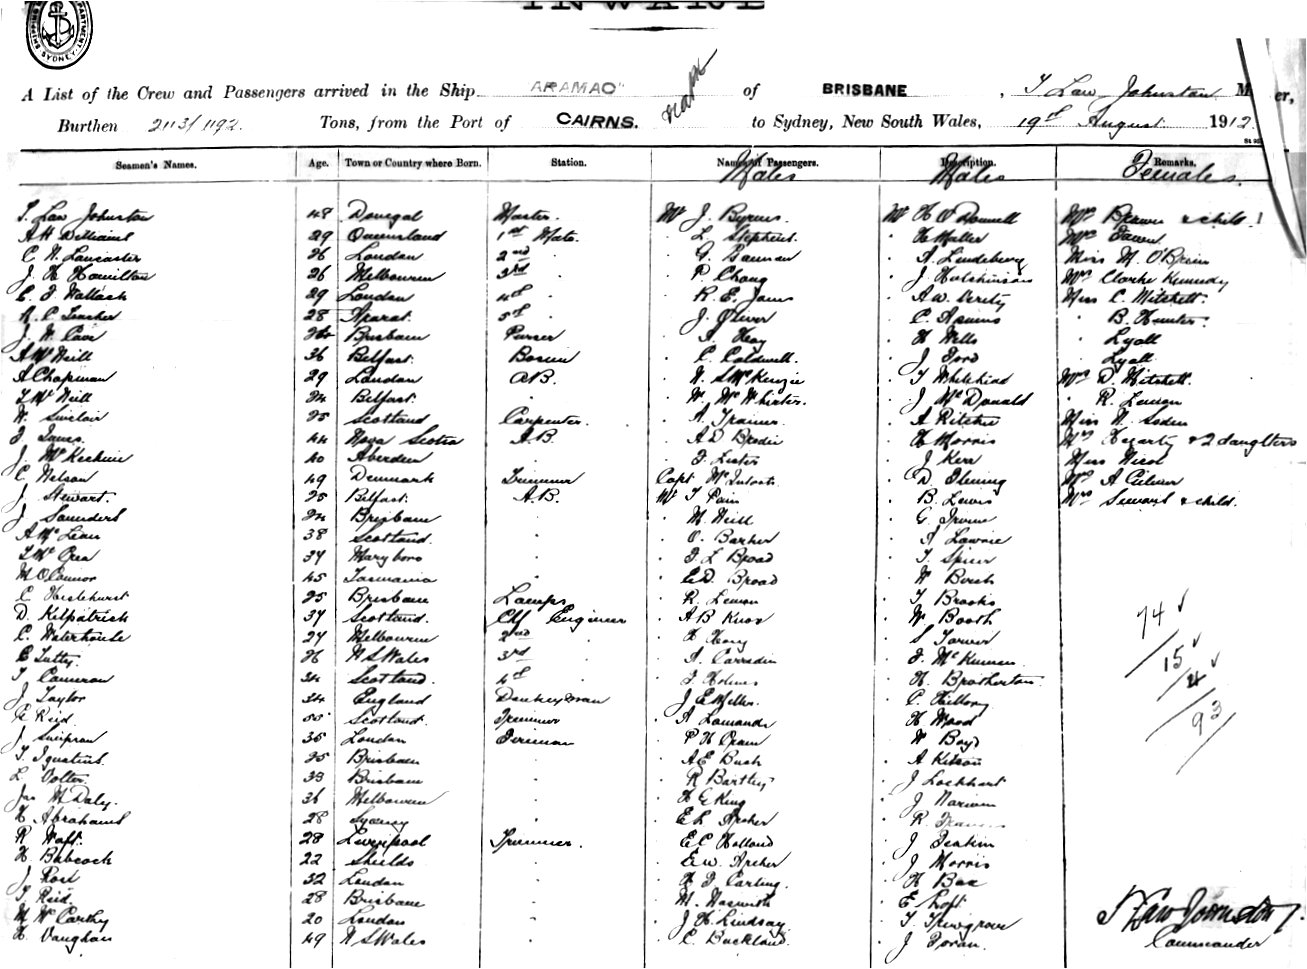 INWARD
SHIPPING DEPARTMENT SYDNEY
A List of the Crew and Passengers arrived in the Ship ARAMAC of BRISBANE, T Law Johnston Master,
Burthen 2113/1192 Tons, from the Port of CAIRNS. to Sydney, New South Wales, 19th August 1912
Seamen's Names. Age. Town or Country where Born. Station. Names of Passengers. Description. Remarks.
Males Males Females.
T. Law Johnston 48 Donegal Master. Mr J. Byrnes. Mr H O'Donnell Mrs Brown & child 1
A H Williams 29 Queensland 1st Mate. L Stephens. H Muller Mrs
C N. Lancaster 26 London 2nd G. A Lindeberg Miss M. O'Brien
J. H Hamilton 26 Melbourne 3rd P Chong J Hutchinson Mrs Clarke Kennedy
C. F Wallach 29 London 4th R. E. A W. Verity Miss C. Mitchell.
R. C 28 Ararat. 5th J Oliver C. B. Hunter.
J. W. Cave Brisbane Purser A. Hay H Wells Lyall
A McNeill 36 Belfast. Bosun C. Caldwell. J Ford Lyall
A Chapman 29 London AB. N. S McKenzie T Whitehead Mrs D. Mitchell.
T Mc Neill 24 Belfast. W. McWhirter. J McDonald R. Lennon
W. Sinclair 25 Scotland Carpenter. A Trainer. A Ritchie Miss N. Soden
F. Innes. 44 Nova Scotia A.B. A D Brodie H Morris Mrs Hegarty & 2 daughters
J. McKechnie 40 Aberdeen F Lister J Kerr Miss Nicol
C Nelson 49 Denmark Capt McIntosh D. Fleming Mrs A
J Stewart. 25 Belfast. A.B. Mr T Pain B. Lewis Mrs Stewart & child.
J Saunders 24 Brisbane M Neill G. Irvine
A McLean 38 Scotland. O. Barker A Lawrie
T Mc 37 Maryboro F L Broad T. Spicer
M O'Connor 45 Tasmania E D. Broad W Birch
C Haslehurst 25 Brisbane Lamps R. Lennon T Brooks
D. Kilpatrick 37 Scotland. Chf Engineer A B Knox W Booth
C. Waterhouse 27 Melbourne 2nd H Hoey S
C Tutty. 26 N S Wales 3rd A. Corradin F. Mc
T Cameron 34 Scotland 4th F Holmes H. Brotherton
J Taylor 34 England Donkeyman J. E Miller. C.
G Reid 55 Scotland. Trimmer A Lomando H Wood
J. Simpson 35 London Fireman P H Oram W Boyd
T. Ignatius 25 Brisbane A E Bush A Kitson
L. Volter 33 Brisbane R Bartley J Lockhart
Jas M Daly. 36 Melbourne H G King J
H Abrahams 28 Sydney E R Archer R
R Watt. 28 Liverpool Trimmer. E C Holland J Deakin
H Babcock 22 Shields E. W. Archer J Morris
J Rose 32 London H J Carling. H Box
T Reid. 28 Brisbane M. E Loft
M McCarthy 20 London J. H. Lindsay T.
H. Vaughan 49 N S Wales C. Buckland. J Foran.
74
15
4
93
T Law Johnston
Commander